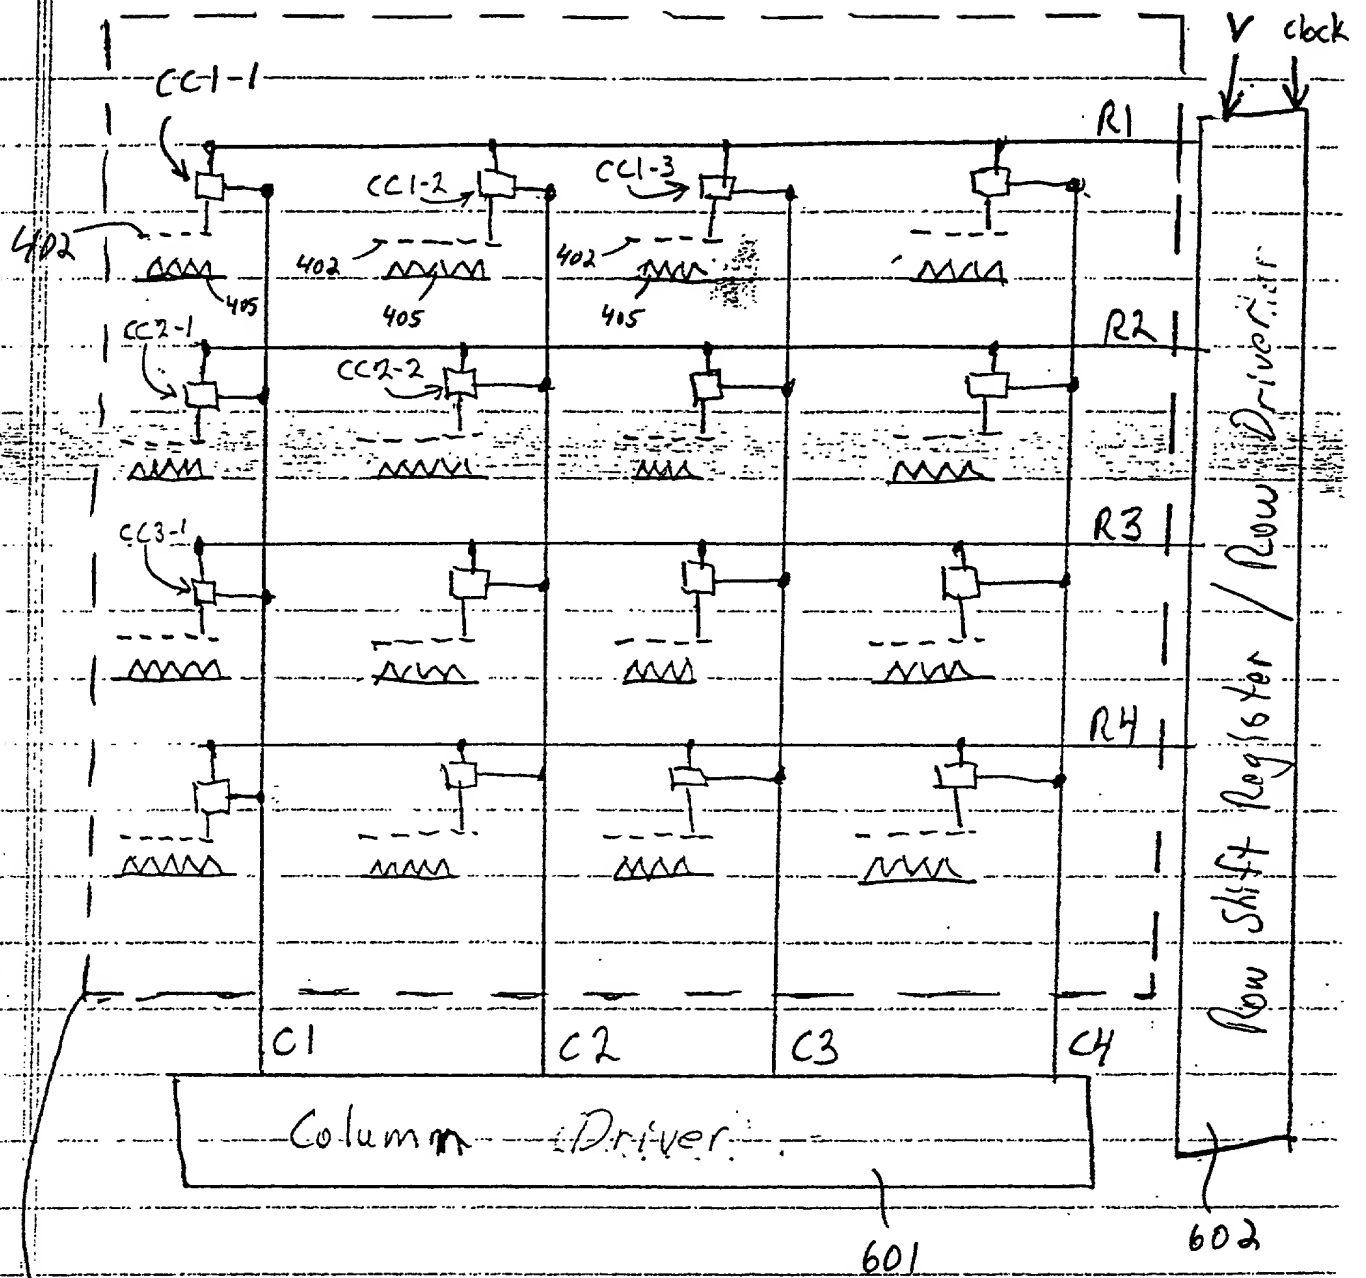 V clock
CC1-1
R1
CC1-2
CC1-3
402
402
402
405
405
405
CC2-1
R2
CC2-2
CC3-1
R3
R4
Row Shift Register / Row Driver
C1
C2
C3
C4
Column Driver
601
602